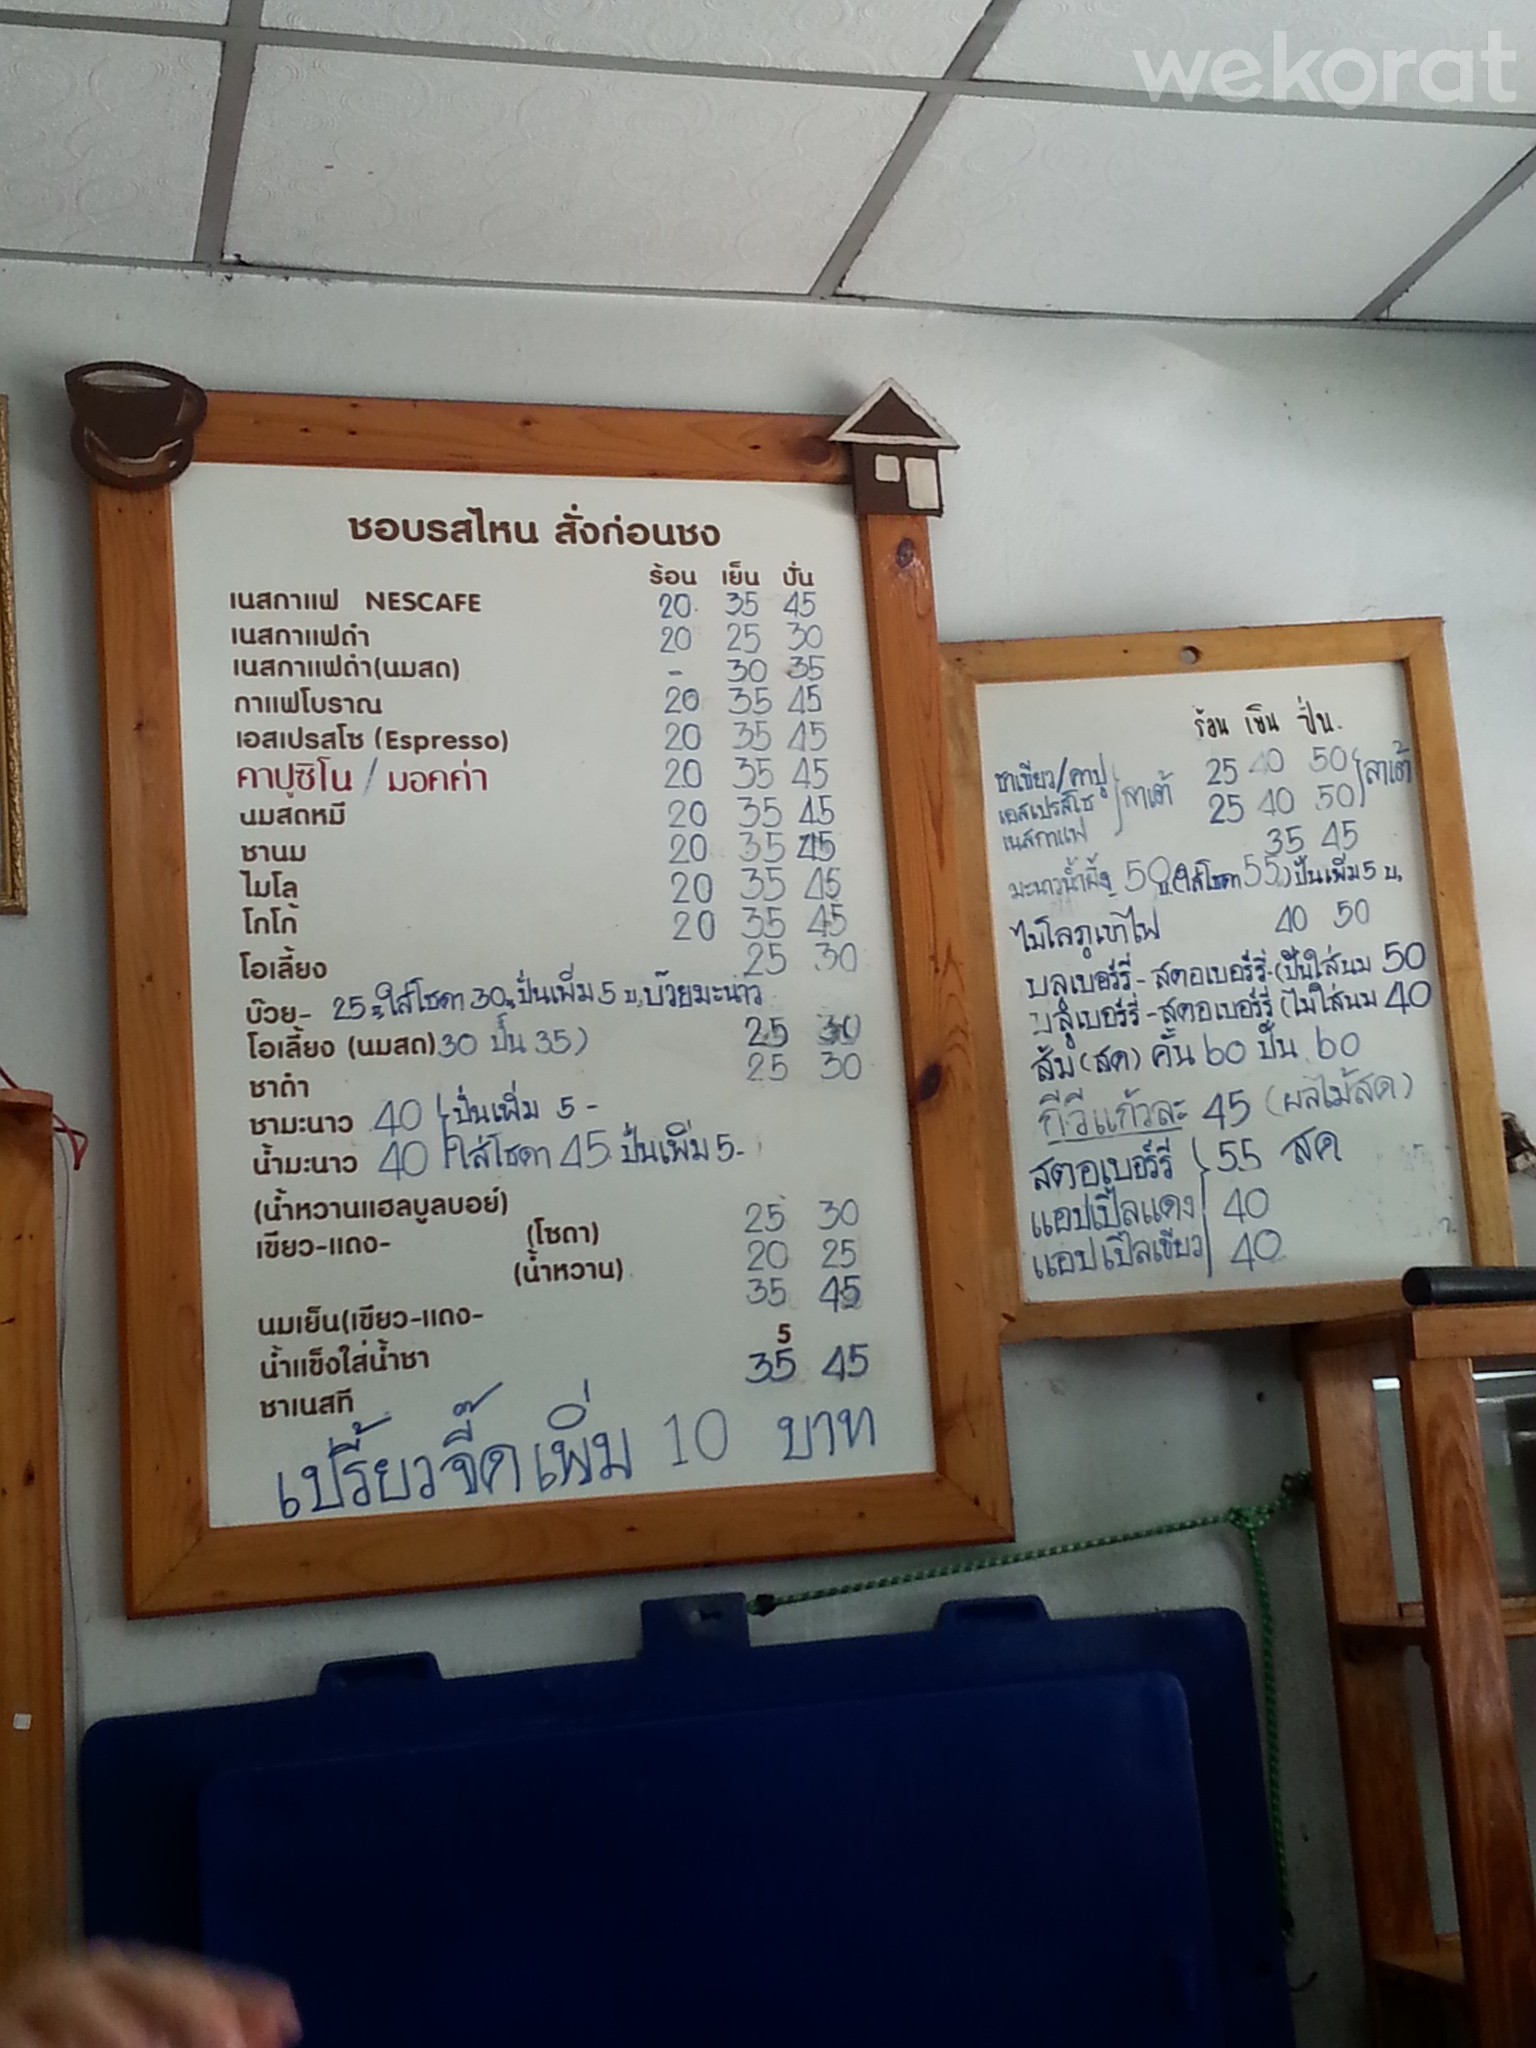 wekorat
ชอบรสไหน สั่งก่อนชง
ร้อน เย็น ปั่น
เนสกาแฟ NESCAFE 20 35 45
เนสกาแฟดำ 20 25 30
เนสกาแฟดำ(นมสด) - 30 35
กาแฟโบราณ 20 35 45
เอสเปรสโซ (Espresso) 20 35 45
คาปูซิโน / มอคค่า 20 35 45
นมสดหมี 20 35 45
ชานม 20 35 45
ไมโล 20 35 45
โกโก้ 20 35 45
โอเลี้ยง 25 30
บ๊วย- 25 ใส่โซดา 30 ปั่นเพิ่ม 5 บ. บ๊วยมะนาว
โอเลี้ยง (นมสด) 30 ปั่น 35) 25 30
ชาดำ 25 30
ชามะนาว 40 ปั่นเพิ่ม 5 -
น้ำมะนาว 40 ใส่โซดา 45 ปั่นเพิ่ม 5-
(น้ำหวานแฮลบูลบอย)
เขียว-แดง- (โซดา) 25 30
(น้ำหวาน) 20 25
นมเย็น(เขียว-แดง- 35 45
น้ำแข็งใส่น้ำชา 5
ชาเนสที 35 45
เปรี้ยวจี๊ดเพิ่ม 10 บาท
ร้อน เย็น ปั่น.
ชาเขียว/คาปู 25 40 50
เอสเปรสโซ ลาเต้ 25 40 50 ลาเต้
เนสกาแฟ 35 45
มะนาวน้ำผึ้ง 50 บ. (ใส่โซดา 55) ปั่นเพิ่ม 5 บ.
ไมโลภูเขาไฟ 40 50
บลูเบอร์รี่ - สตอเบอร์รี่ (ปั่นใส่นม 50
บลูเบอร์รี่ - สตอเบอร์รี่ (ไม่ใส่นม 40
ส้ม (สด) คั้น 60 ปั่น 60
กีวีแก้วละ 45 (ผลไม้สด)
สตอเบอร์รี่ 55 สด
แอปเปิ้ลแดง 40
แอปเปิ้ลเขียว 40